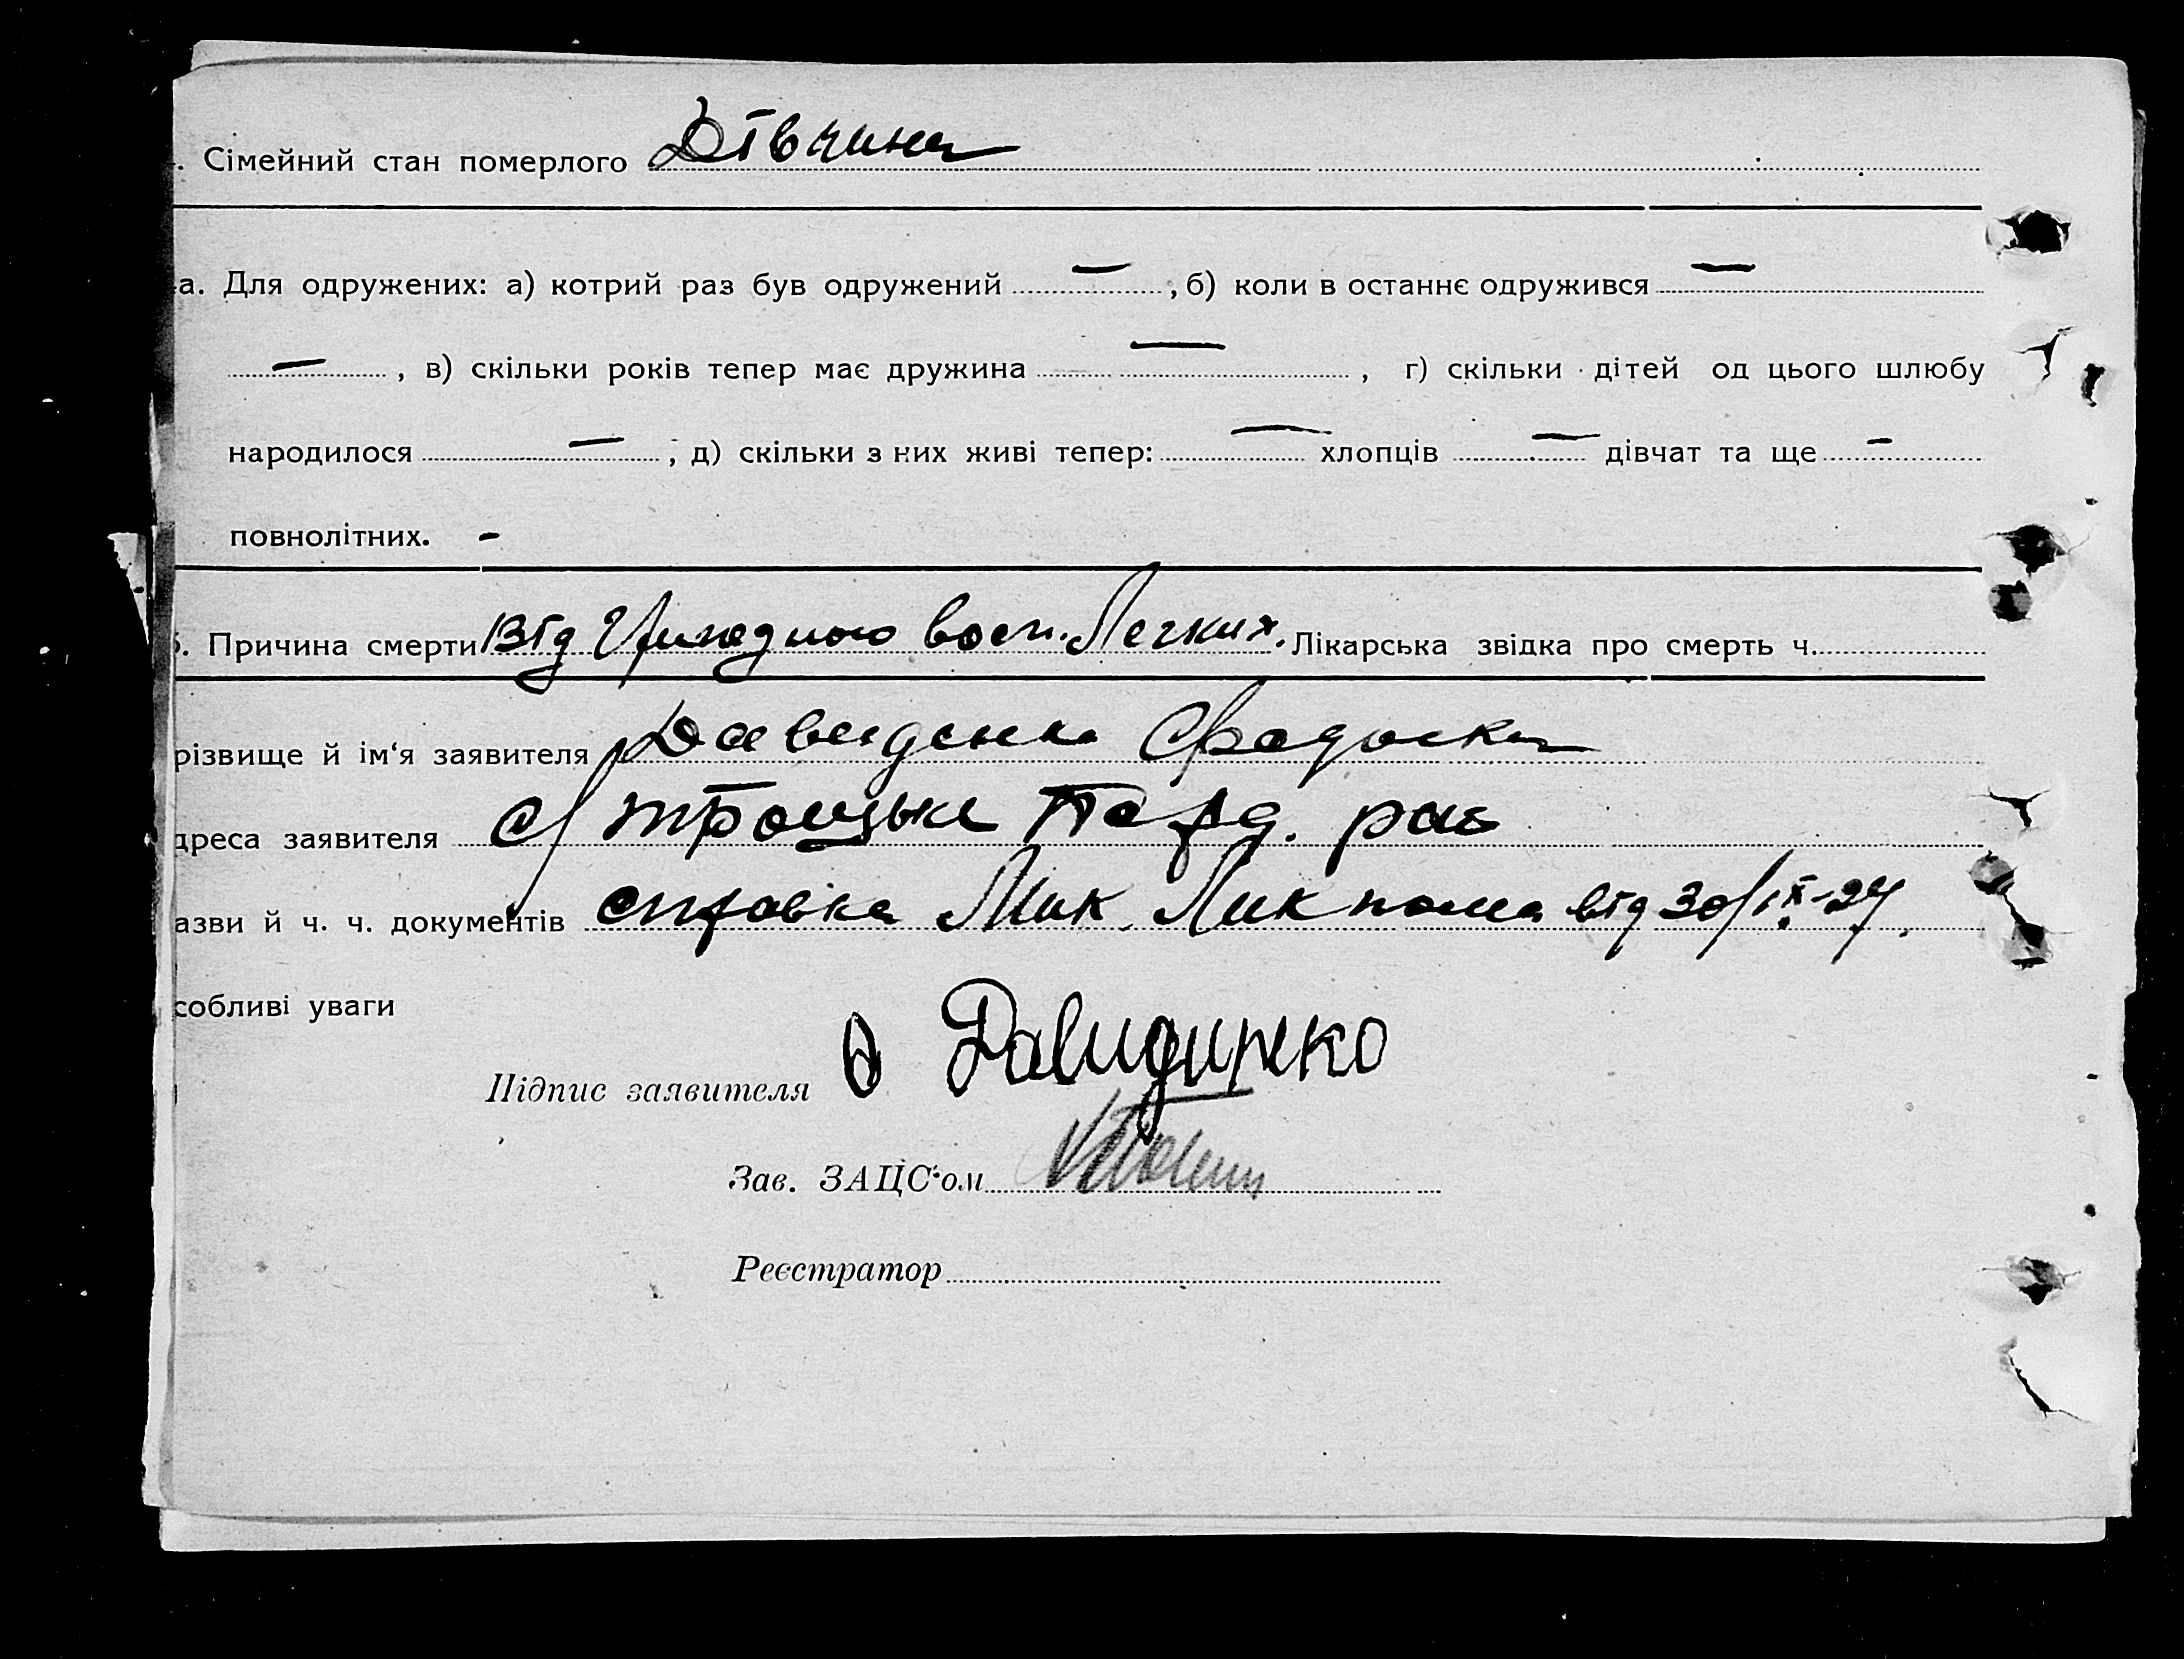 . Сімейний стан померлого Дівчина
а. Для одружених: а) котрий раз був одружений — , б) коли в останнє одружився —
— , в) скільки років тепер має дружина — , г) скільки дітей од цього шлюбу
народилося — ; д) скільки з них живі тепер: — хлопців — дівчат та ще —
повнолітних. -
. Причина смерти Від восп. Легких. Лікарська звідка про смерть ч.
різвище й ім‘я заявителя Давиденко
дреса заявителя С Троицьке рай
азви й ч. ч. документів справка Ликпома від 30/IX-27.
собливі уваги
Підпис заявителя
Зав. ЗАЦС‘ом
Реєстратор